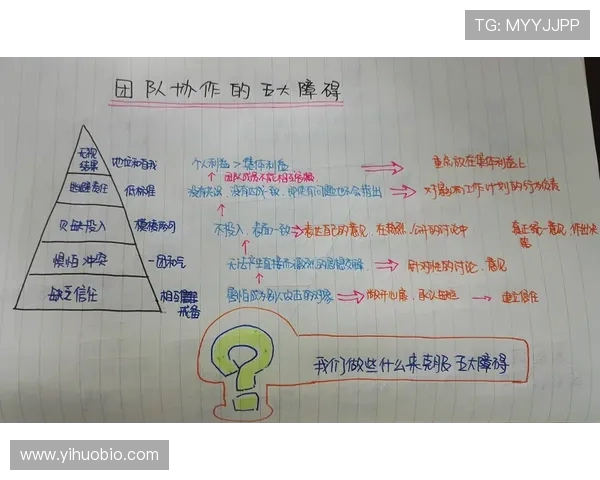 TG: MYYJJPP
团队协作的五大障碍
无视结果 地位和自我 个人利益 > 集体利益 重点放在集体利益上
团队成员不能相互
逃避责任 低标准 没有达成一致, 即使有问题也不会指出 对影响工作计划的行为负责
欠缺投入 模棱两可 不投入, 表面一致 表达自己的意见, 在 公开的讨论中 真正统一意见, 作出决策
惧怕冲突 一团和气 无法产生直接而激烈的思想交锋 针对性的讨论, 意见
缺乏信任 相互 戒备 害怕成为别人攻击的对象 敞开心扉, 承认 建立信任
我们做些什么来克服五大障碍
www.yihuobio.com